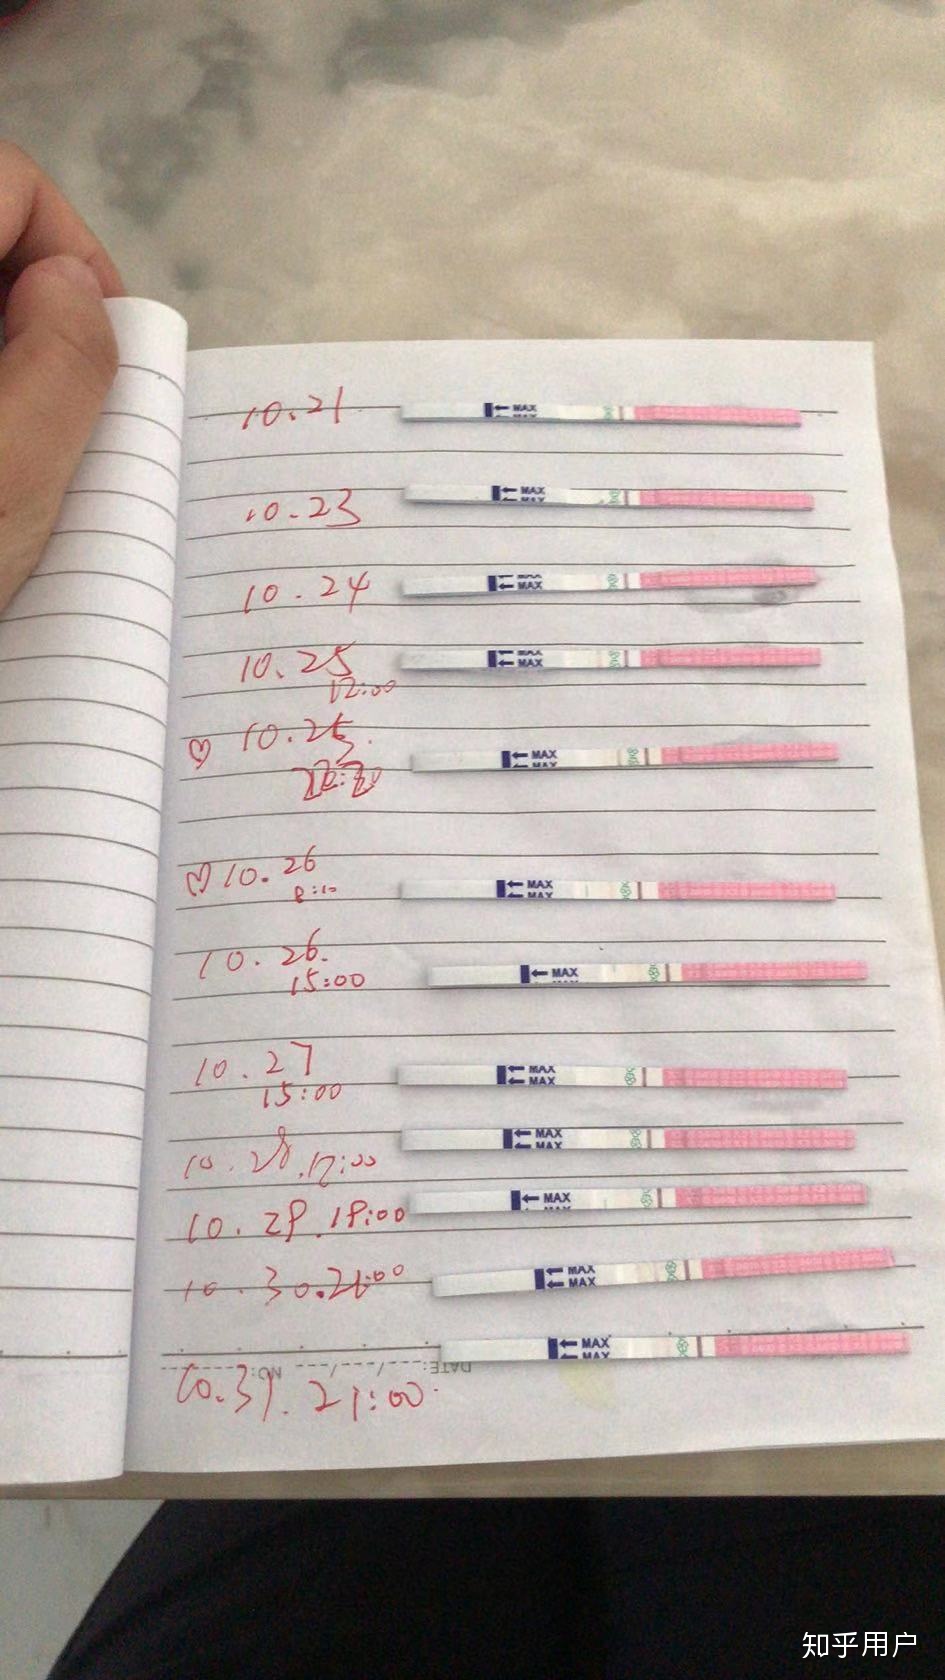 10.21
MAX
MAX
10.23
MAX
MAX
10.24
MAX
MAX
10.25
12:00
MAX
MAX
♡ 10.25
MAX
MAX
♡ 10.26
8:10
MAX
MAX
10.26.
15:00
MAX
10.27
15:00
MAX
MAX
10.28.12:00
MAX
MAX
10.29.18:00
MAX
10.30.21:00
MAX
MAX
MAX
MAX
DATE: NO:
10.31. 21:00
知乎用户